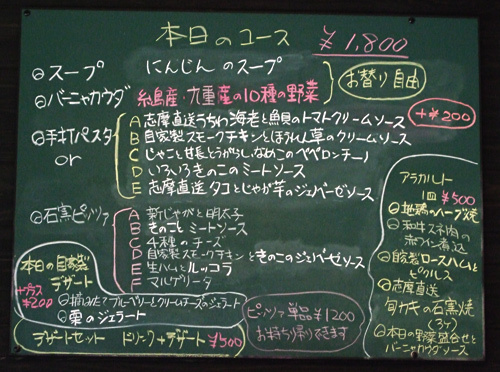 本日のコース ¥1,800
⊖スープ にんじんのスープ
⊖バーニャカウダ 糸島産・九重産の10種の野菜
お替り自由
⊖手打パスタ
or
A 志摩直送うちわ海老と魚貝のトマトクリームソース
+¥200
B 自家製スモークチキンとほうれん草のクリームソース
C じゃこと甘長とうがらし、なめこのペペロンチーノ
D いろいろきのこのミートソース
E 志摩直送タコとじゃが芋のジェノベーゼソース
⊖石窯ピッツァ
A 新じゃがと明太子
B きのことミートソース
C 4種のチーズ
D 自家製スモークチキンときのこのジェノベーゼソース
E 生ハムとルッコラ
F マルゲリータ
本日の自家製
デザート
+プラス
¥200
⊖摘みたてブルーベリーとクリームチーズのジェラート
⊖栗のジェラート
デザートセット ドリンク+デザート ¥500
ピッツァ単品 ¥1200
お持ち帰りできます
アラカルト
1皿 ¥500
⊖地鶏のハーブ焼
⊖和牛スネ肉の
赤ワイン煮込
⊖自家製ロースハムと
ピクルス
⊖志摩直送
旬カキの石窯焼
(3ヶ)
⊖本日の野菜盛合せと
バーニャカウダソース